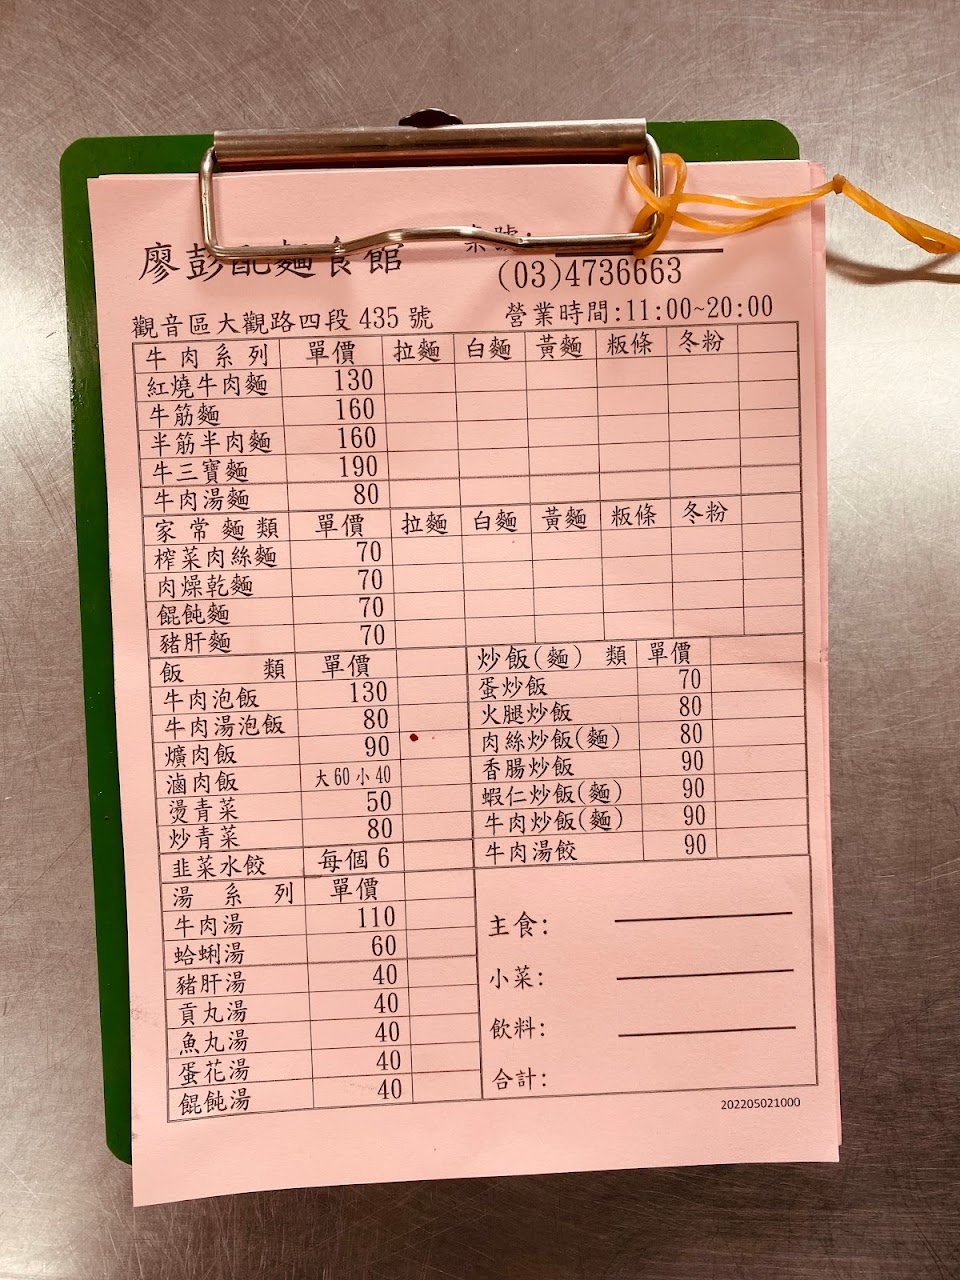 廖彭配麵食館 桌號:
(03)4736663
觀音區大觀路四段 435 號 營業時間:11:00~20:00
牛肉系列 單價 拉麵 白麵 黃麵 粄條 冬粉
紅燒牛肉麵 130
牛筋麵 160
半筋半肉麵 160
牛三寶麵 190
牛肉湯麵 80
家常麵類 單價 拉麵 白麵 黃麵 粄條 冬粉
榨菜肉絲麵 70
肉燥乾麵 70
餛飩麵 70
豬肝麵 70
飯類 單價
牛肉泡飯 130
牛肉湯泡飯 80
爌肉飯 90
滷肉飯 大60小40
燙青菜 50
炒青菜 80
韭菜水餃 每個6
湯系列 單價
牛肉湯 110
蛤蜊湯 60
豬肝湯 40
貢丸湯 40
魚丸湯 40
蛋花湯 40
餛飩湯 40
炒飯(麵)類 單價
蛋炒飯 70
火腿炒飯 80
肉絲炒飯(麵) 80
香腸炒飯 90
蝦仁炒飯(麵) 90
牛肉炒飯(麵) 90
牛肉湯餃 90
主食:
小菜:
飲料:
合計:
202205021000